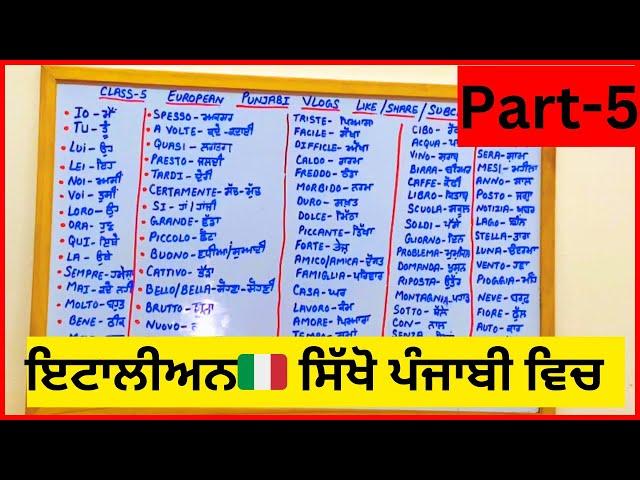 Part-5
CLASS-5 EUROPEAN PUNJABI VLOGS LIKE/SHARE/SUBC
IO - ਮੈਂ
TU - ਤੂੰ
LUI - ਉਹ
LEI - ਇਹ
NOI - ਅਸੀ
VOI - ਤੁਸੀ
LORO - ਉਹ
ORA - ਹੁਣ
QUI - ਇਥੇ
LA - ਉਥੇ
SEMPRE - ਹਮੇਸ਼ਾ
MAI - ਕਦੇ ਨਹੀਂ
MOLTO - ਬਹੁਤ
BENE - ਠੀਕ
SPESSO - ਅਕਸਰ
A VOLTE - ਕਦੇ ਕਦਾਈ
QUASI - ਲਗਭਗ
PRESTO - ਜਲਦੀ
TARDI - ਦੇਰੀ
CERTAMENTE - ਸੱਚ-ਮੁੱਚ
SI - ਹਾਂ/ਹਾਂਜੀ
GRANDE - ਵੱਡਾ
PICCOLO - ਛੋਟਾ
BUONO - ਵਧੀਆ/ਸੁਆਦੀ
CATTIVO - ਭੈੜਾ
BELLO/BELLA - ਸੋਹਣਾ-ਸੋਹਣੀ
BRUTTO -
NUOVO -
TRISTE -
FACILE - ਸੌਖਾ
DIFFICLE - ਔਖਾ
CALDO - ਗਰਮ
FREDDO - ਠੰਡਾ
MORBIDO - ਨਰਮ
DURO - ਸਖ਼ਤ
DOLCE - ਮਿੱਠਾ
PICCANTE - ਤਿੱਖਾ
FORTE - ਤੇਜ਼
AMICO/AMICA - ਦੋਸਤ
FAMIGLIA - ਪਰਿਵਾਰ
CASA - ਘਰ
LAVORO - ਕੰਮ
AMORE - ਪਿਆਰ
TEMPO - ਸਮਾਂ
CIBO -
ACQUA - ਪਾਣੀ
VINO - ਸ਼ਰਾਬ
BIRRA - ਬੀਅਰ
CAFFE - ਕੌਫੀ
LIBRO - ਕਿਤਾਬ
SCUOLA - ਸਕੂਲ
SOLDI - ਪੈਸੇ
GLIORNO - ਦਿਨ
PROBLEMA - ਮੁਸ਼ਕਿਲ
DOMANDA - ਪ੍ਰਸ਼ਨ
RIPOSTA - ਉੱਤਰ
MONTAGNIA - ਪਹਾੜ
SOTTO - ਥੱਲੇ
CON - ਨਾਲ
SENZA
SERA - ਸ਼ਾਮ
MESI - ਮਹੀਨਾ
ANNO - ਸਾਲ
POSTO - ਜਗ੍ਹਾ
NOTIZIA - ਖ਼ਬਰ
LAGO - ਝੀਲ
STELLA - ਤਾਰਾ
LUNA - ਚੰਦਰਮਾ
VENTO - ਹਵਾ
PIOGGIA - ਮੀਂਹ
NEVE - ਬਰਫ਼
FIORE - ਫੁੱਲ
AUTO - ਕਾਰ
ਇਟਾਲੀਅਨ🇮🇹 ਸਿੱਖੋ ਪੰਜਾਬੀ ਵਿਚ